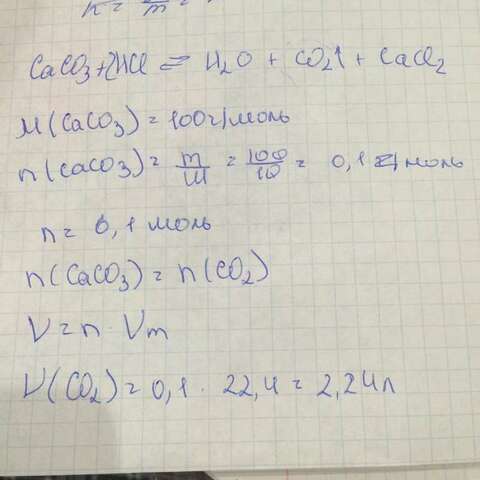 n = m
CaCO3 + 2HCl = H2O + CO2↑ + CaCl2
M(CaCO3) = 100г/моль
n(CaCO3) = m/M = 100/10 = 0,1 моль
n = 0,1 моль
n(CaCO3) = n(CO2)
V = n · Vm
V(CO2) = 0,1 · 22,4 = 2,24л